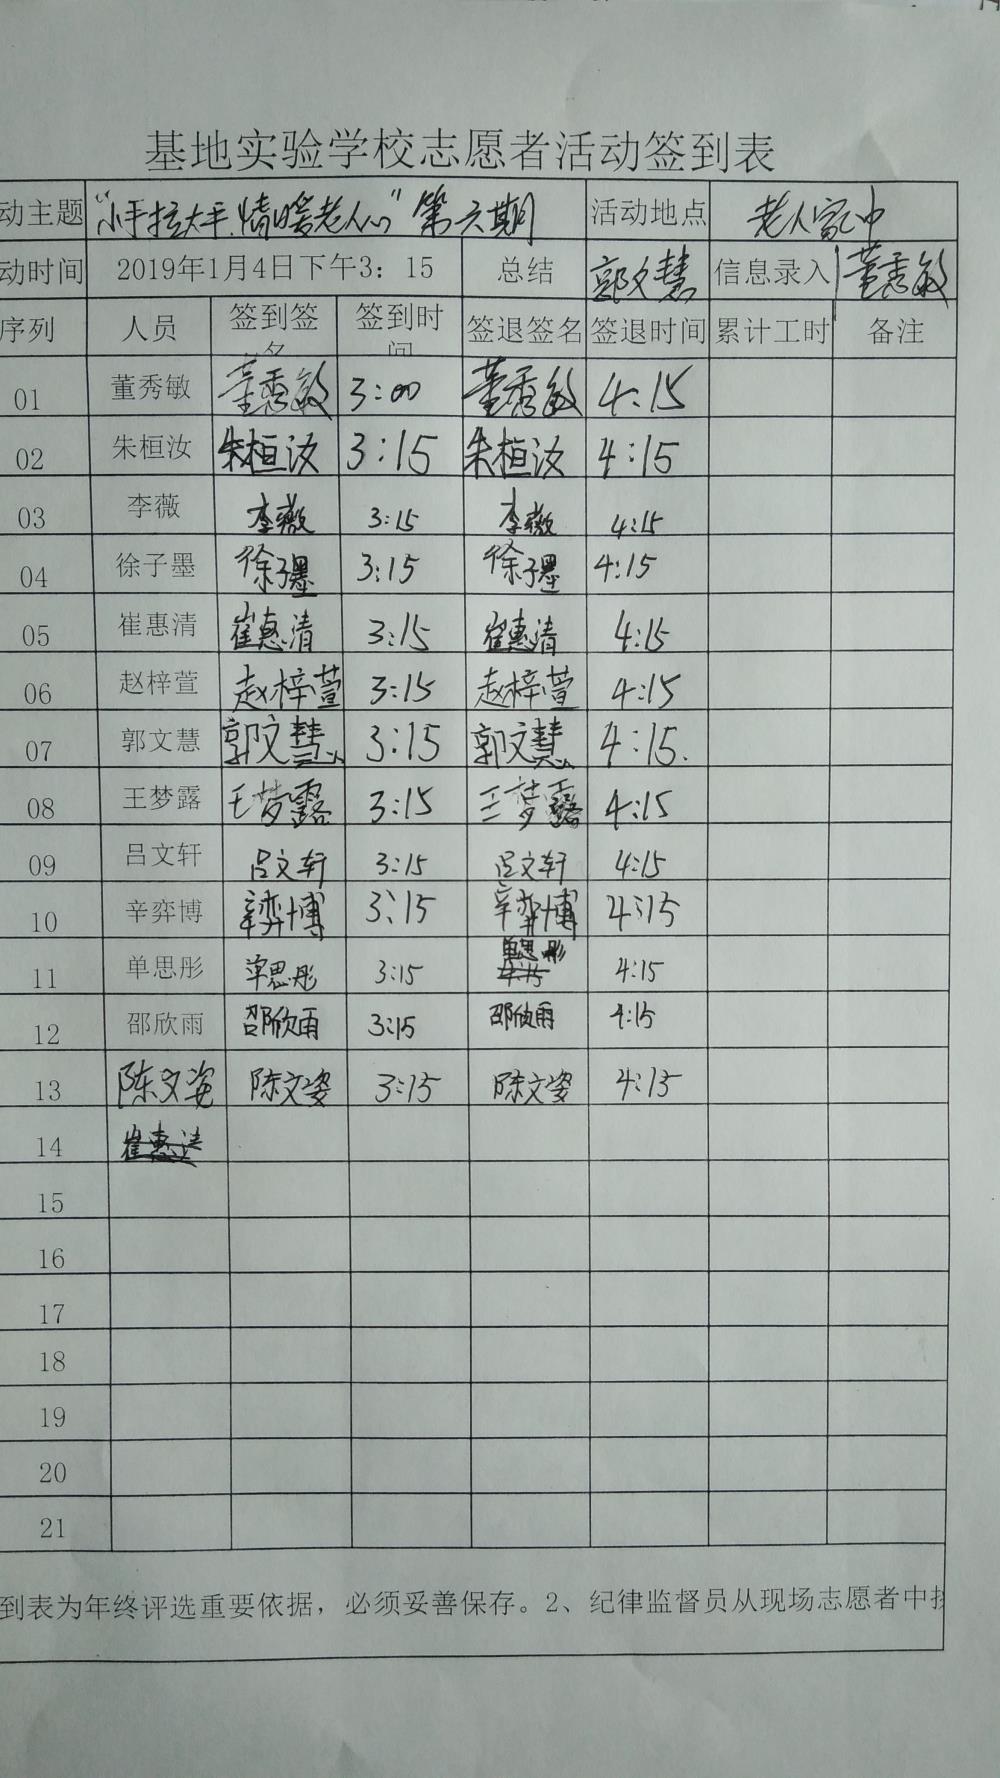 基地实验学校志愿者活动签到表
动主题 “小手拉大手,情暖老人心”第六期 活动地点 老人家中
动时间 2019年1月4日下午3：15 总结 郭文慧 信息录入 董秀敏
序列 人员 签到签名 签到时间 签退签名 签退时间 累计工时 备注
01 董秀敏 董秀敏 3:00 董秀敏 4:15
02 朱桓汝 朱桓汝 3:15 朱桓汝 4:15
03 李薇 李薇 3:15 李薇 4:15
04 徐子墨 徐子墨 3:15 徐子墨 4:15
05 崔惠清 崔惠清 3:15 崔惠清 4:15
06 赵梓萱 赵梓萱 3:15 赵梓萱 4:15
07 郭文慧 郭文慧 3:15 郭文慧 4:15.
08 王梦露 王梦露 3:15 王梦露 4:15
09 吕文轩 吕文轩 3:15 吕文轩 4:15
10 辛弈博 辛弈博 3:15 辛弈博 4:15
11 单思彤 单思彤 3:15 单思彤 4:15 4:15
12 邵欣雨 邵欣雨 3:15 邵欣雨 4:15
13 陈文姿 陈文姿 3:15 陈文姿 4:15
14 崔惠清
15
16
17
18
19
20
21
到表为年终评选重要依据，必须妥善保存。2、纪律监督员从现场志愿者中